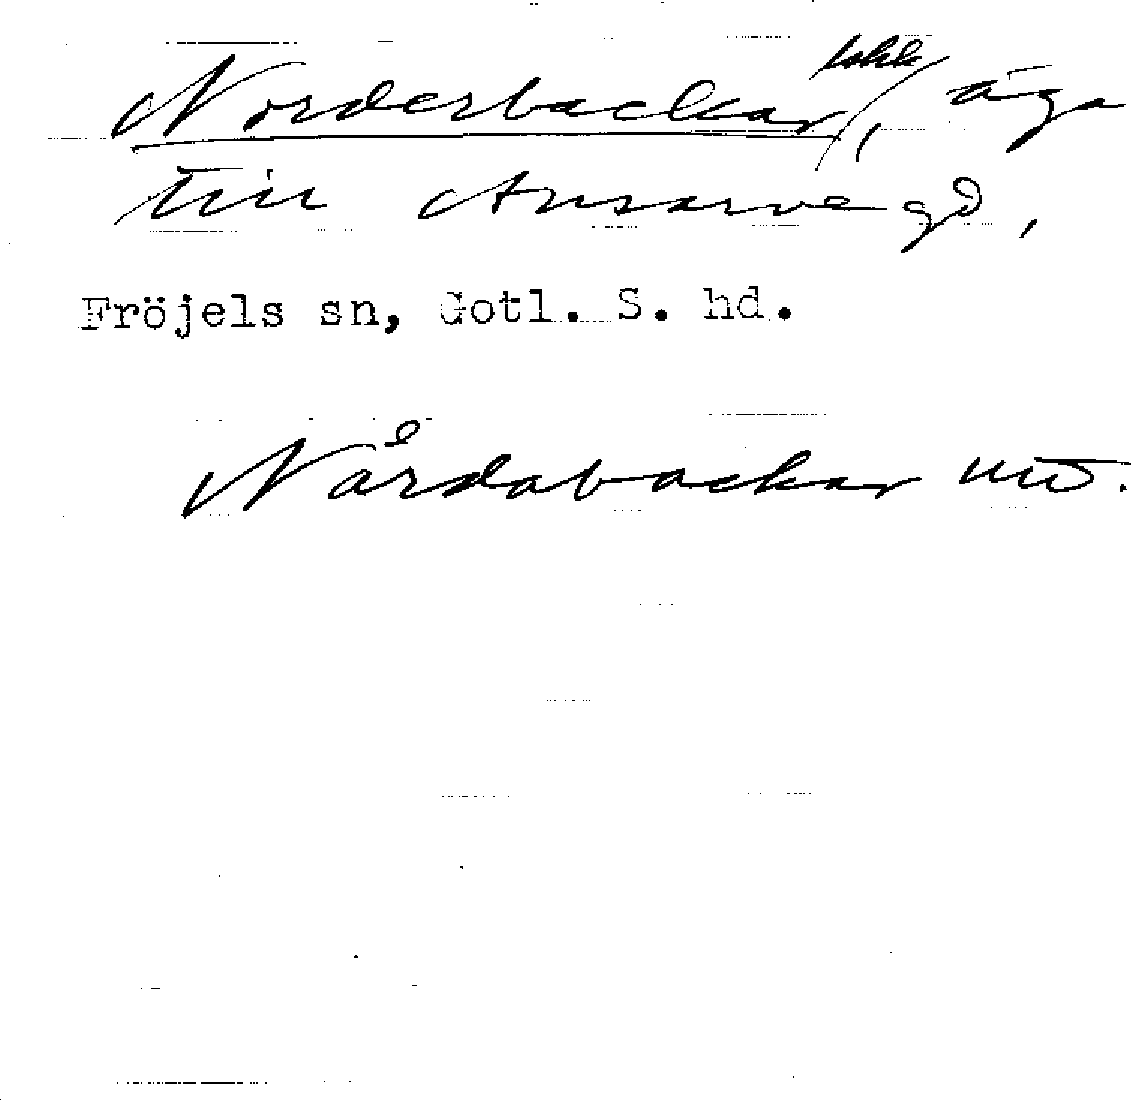 Norderbackar, äga
till Ansarve gd,
Fröjels sn, Gotl. S. hd.
Nårdabackar